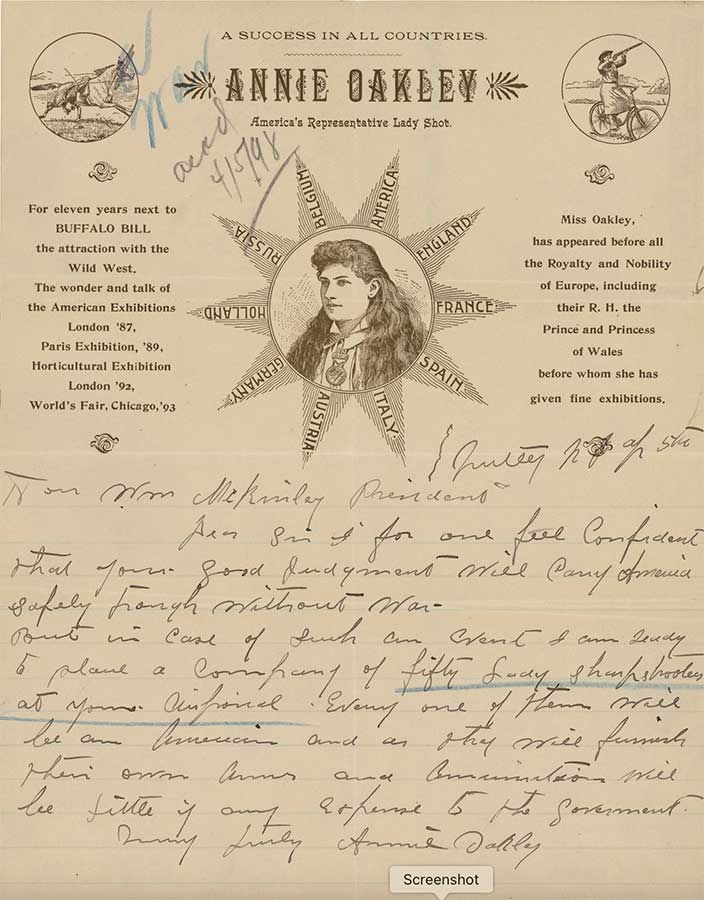 A SUCCESS IN ALL COUNTRIES.
ANNIE OAKLEY
America's Representative Lady Shot.
War
ackd
4/5/98
For eleven years next to
BUFFALO BILL
the attraction with the
Wild West.
The wonder and talk of
the American Exhibitions
London '87,
Paris Exhibition, '89,
Horticultural Exhibition
London '92,
World's Fair, Chicago, '93
BELGIUM
AMERICA
ENGLAND
FRANCE
SPAIN.
ITALY.
AUSTRIA
GERMANY
HOLLAND
RUSSIA
Miss Oakley,
has appeared before all
the Royalty and Nobility
of Europe, including
their R. H. the
Prince and Princess
of Wales
before whom she has
given fine exhibitions.
Nutley N J ap 5th
Hon Wm McKinley President
Dear Sir I for one feel Confident
that your good judgment will carry America
safely trough without War-
But in case of such an event I am ready
to place a Company of fifty lady sharpshooters
at your disposal. Every one of them will
be an American and as they will furnish
their own Arms and Ammunition will
be little if any expense to the goverment.
Very truly Annie Oakley
Screenshot